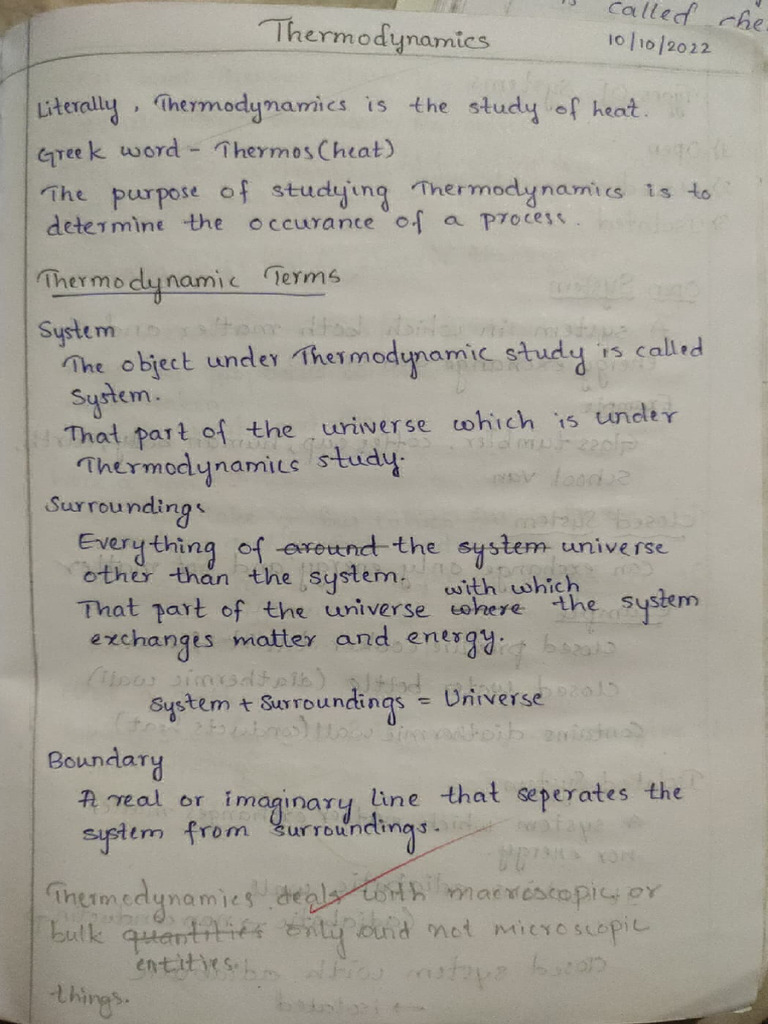 called
Thermodynamics
10/10/2022
Literally, Thermodynamics is the study of heat.
Greek word - Thermos (heat)
The purpose of studying Thermodynamics is to
determine the occurance of a process.
Thermodynamic Terms
System
The object under Thermodynamic study is called
System.
That part of the universe which is under
Thermodynamics study.
Surroundings
Everything of around the system universe
other than the system.
with which
That part of the universe where the system
exchanges matter and energy.
System + Surroundings = Universe
Boundary
A real or imaginary line that seperates the
system from surroundings.
Thermodynamics deals with macroscopic or
bulk quantities only and not microscopic
entities.
things.